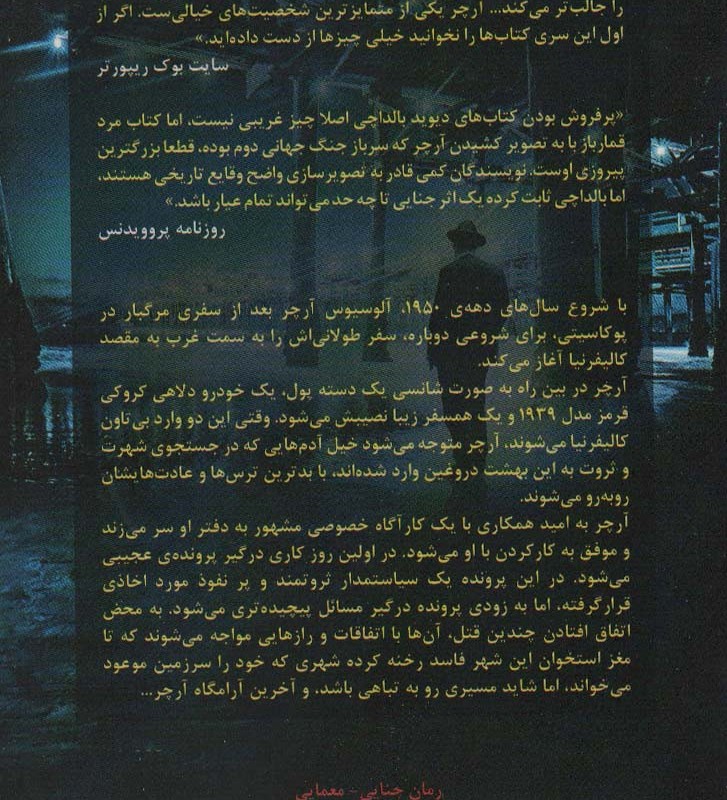 را جالب‌تر می‌کند... آرچر یکی از متمایزترین شخصیت‌های خیالی‌ست. اگر از
اول این سری کتاب‌ها را نخوانید خیلی چیزها از دست داده‌اید.»
سایت بوک ریپورتر
«پرفروش بودن کتاب‌های دیوید بالداچی اصلا چیز غریبی نیست، اما کتاب مرد
قمارباز با به تصویر کشیدن آرچر که سرباز جنگ جهانی دوم بوده، قطعا بزرگترین
پیروزی اوست. نویسندگان کمی قادر به تصویرسازی واضح وقایع تاریخی هستند،
اما بالداچی ثابت کرده یک اثر جنایی تا چه حد می‌تواند تمام عیار باشد.»
روزنامه پروویدنس
با شروع سال‌های دهه‌ی ۱۹۵۰، آلوسیوس آرچر بعد از سفری مرگبار در
پوکاسیتی، برای شروعی دوباره، سفر طولانی‌اش را به سمت غرب به مقصد
کالیفرنیا آغاز می‌کند.
آرچر در بین راه به صورت شانسی یک دسته پول، یک خودرو دلاهی کروکی
قرمز مدل ۱۹۳۹ و یک همسفر زیبا نصیبش می‌شود. وقتی این دو وارد بی‌تاون
کالیفرنیا می‌شوند، آرچر متوجه می‌شود خیل آدم‌هایی که در جستجوی شهرت
و ثروت به این بهشت دروغین وارد شده‌اند، با بدترین ترس‌ها و عادت‌هایشان
روبه‌رو می‌شوند.
آرچر به امید همکاری با یک کارآگاه خصوصی مشهور به دفتر او سر می‌زند
و موفق به کارکردن با او می‌شود. در اولین روز کاری درگیر پرونده‌ی عجیبی
می‌شود. در این پرونده یک سیاستمدار ثروتمند و پر نفوذ مورد اخاذی
قرارگرفته، اما به زودی پرونده درگیر مسائل پیچیده‌تری می‌شود. به محض
اتفاق افتادن چندین قتل، آن‌ها با اتفاقات و رازهایی مواجه می‌شوند که تا
مغز استخوان این شهر فاسد رخنه کرده شهری که خود را سرزمین موعود
می‌خواند، اما شاید مسیری رو به تباهی باشد، و آخرین آرامگاه آرچر...
رمان جنایی - معمایی